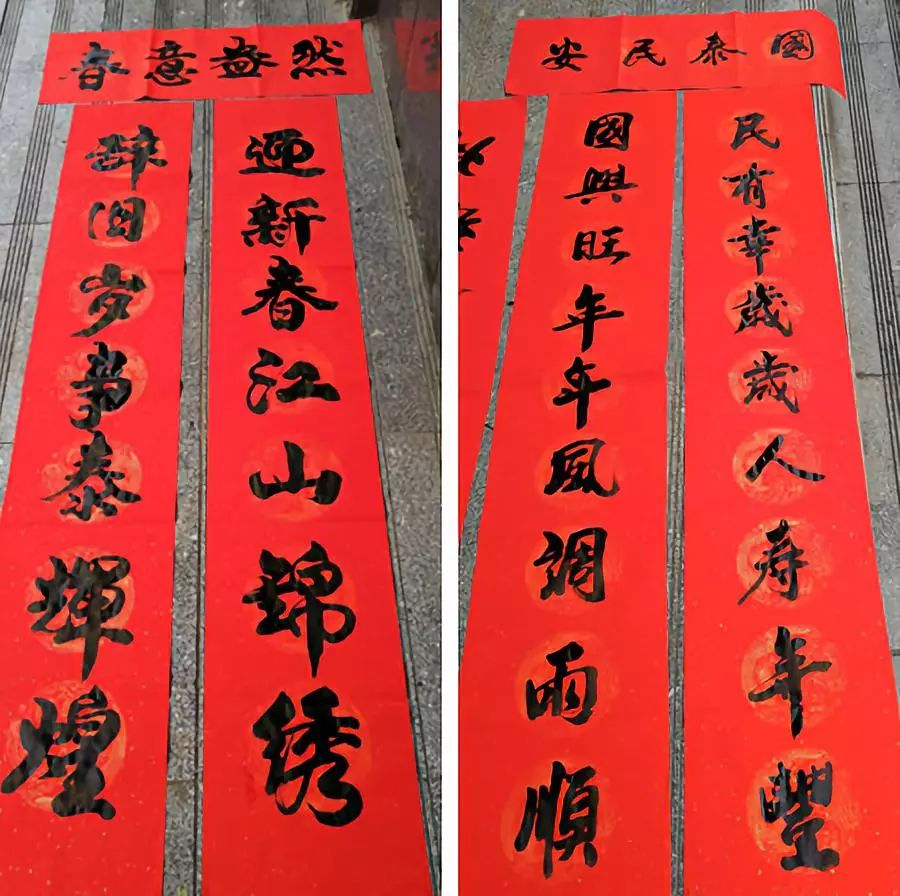 春意盎然
迎新春江山錦绣
辞旧岁事泰輝煌
國泰民安
民有幸歲歲人寿年豐
國興旺年年風調雨順